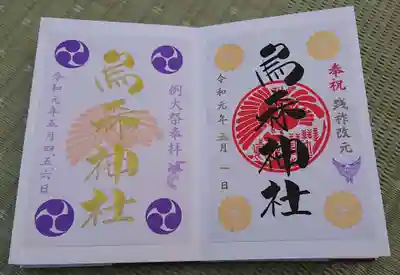 奉祝 践祚改元
烏森神社
令和元年五月一日
例大祭奉拝
烏森神社
令和元年五月四五六日